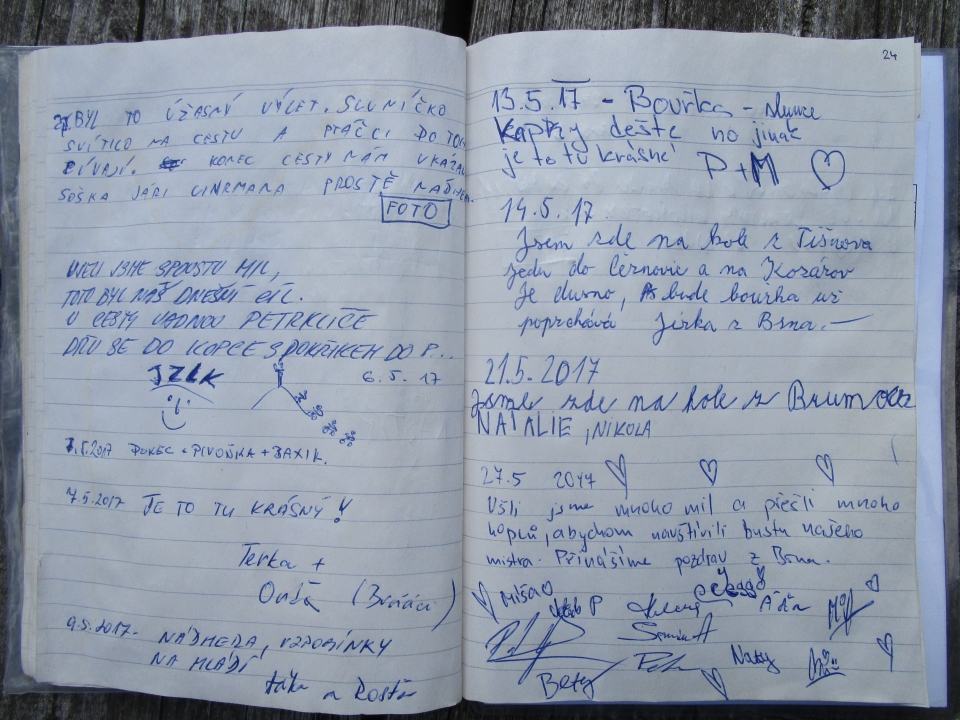 BYL TO ÚŽASNÝ VÝLET. SLUNÍČKO
SVÍTILO NA CESTU A PTÁČCI DO TOH
ZÍVAJÍ. KONEC CESTY NÁM UKÁZAL
SOŠKA JÁRI CIMRMANA PROSTĚ NÁDHERA.
FOTO
UŠLI JSME SPOUSTU MIL,
TOTO BYL NÁŠ DNEŠNÍ CÍL.
U CESTY VADNOU PETRKLÍČE
DRU SE DO KOPCE S POKŘIKEM DO P...
JZLK
6. 5. 17
7.5.2017 PUKEC + PIVOŇKA + BAXIK.
7.5.2017 JE TO TU KRÁSNÝ!
Terka +
Ondra (Brňáci)
9.5.2017. NÁDHERA, VZPOMÍNKY
NA MLÁDÍ
a Rosťa
24
13.5.17 - Bouřka - slunce
kapky deště no jinak
je to tu krásné
P+M
14.5.17.
Jsem zde na kole z Tišnova
jedu do Černovic a na Kozárov
Je dusno, bude bouřka už
poprchává Jirka z Brna.
21.5.2017
Jsme zde na kole z Brumova
NATALIE, NIKOLA
27.5 2017
Ušli jsme mnoho mil a přešli mnoho
kopců, abychom navštívili bustu našeho
mistra. Přinášíme pozdrav z Brna.
Míša
P
Áďa
Naty
Bety